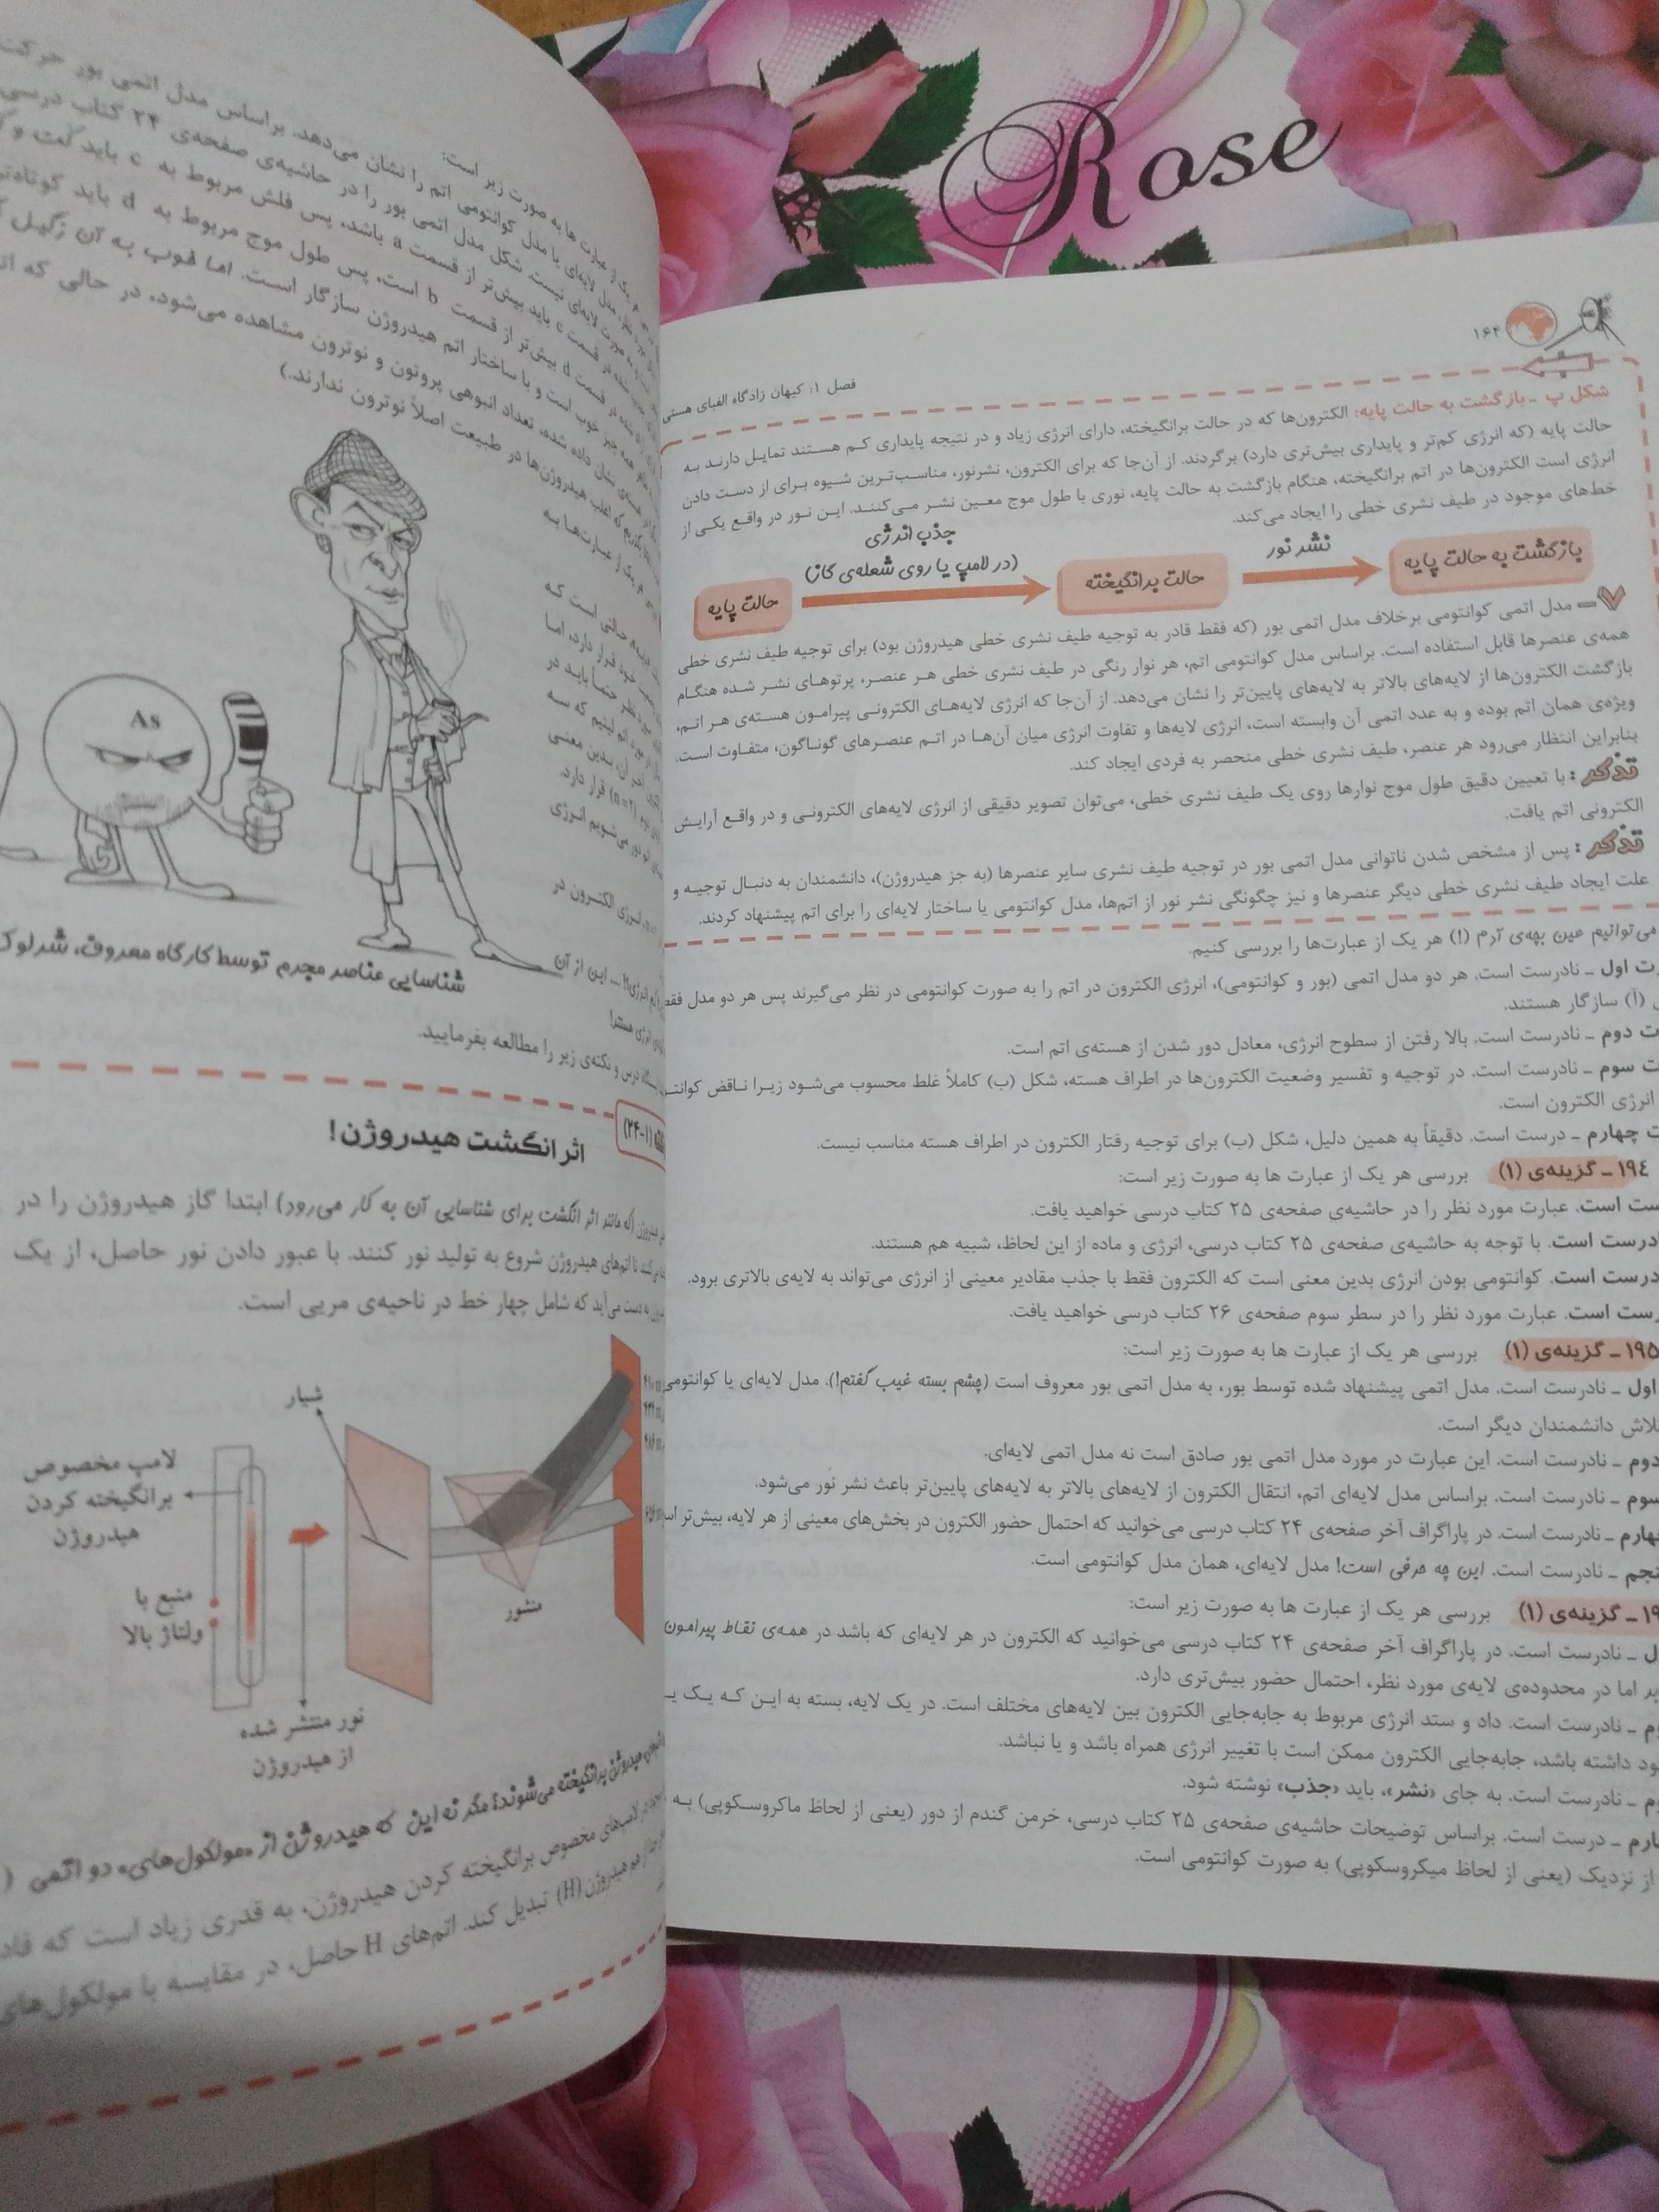 Rose
۱۶۴
فصل ۱: کیهان زادگاه الفبای هستی
شکل پ ـ بازگشت به حالت پایه: الکترون‌ها که در حالت برانگیخته، دارای انرژی زیاد و در نتیجه پایداری کـم هسـتند تمایـل دارنـد بـه
حالت پایه (که انرژی کم‌تر و پایداری بیش‌تری دارد) برگردند. از آن‌جا که برای الکترون، نشرنور، مناسب‌تـرین شـیوه بـرای از دسـت دادن
انرژی است الکترون‌ها در اتم برانگیخته، هنگام بازگشت به حالت پایه، نوری با طول موج معین نشـر مـی‌کننـد. ایـن نـور در واقع یکـی از
خط‌های موجود در طیف نشری خطی را ایجاد می‌کند.
حالت پایه
جذب انرژی
(در لامپ یا روی شعله‌ی گاز)
حالت برانگیخته
نشر نور
بازگشت به حالت پایه
مدل اتمی کوانتومی برخلاف مدل اتمی بور (که فقط قادر به توجیه طیف نشری خطی هیدروژن بود) برای توجیه طیف نشری خطی
همه‌ی عنصرها قابل استفاده است. براساس مدل کوانتومی اتم، هر نوار رنگی در طیف نشری خطی هـر عنصـر، پرتوهـای نشـر شـده هنگـام
بازگشت الکترون‌ها از لایه‌های بالاتر به لایه‌های پایین‌تر را نشان می‌دهد. از آن‌جا که انرژی لایه‌هـای الکترونـی پیرامـون هسـته‌ی هـر اتـم،
ویژه‌ی همان اتم بوده و به عدد اتمی آن وابسته است، انرژی لایه‌ها و تفاوت انرژی میان آن‌هـا در اتـم عنصـرهای گونـاگون، متفـاوت اسـت.
بنابراین انتظار می‌رود هر عنصر، طیف نشری خطی منحصر به فردی ایجاد کند.
تذکر: با تعیین دقیق طول موج نوارها روی یک طیف نشری خطی، می‌توان تصویر دقیقی از انرژی لایه‌های الکترونـی و در واقـع آرایـش
الکترونی اتم یافت.
تذکر: پس از مشخص شدن ناتوانی مدل اتمی بور در توجیه طیف نشری سایر عنصرها (به جز هیدروژن)، دانشمندان به دنبـال توجیـه و
علت ایجاد طیف نشری خطی دیگر عنصرها و نیز چگونگی نشر نور از اتم‌ها، مدل کوانتومی یا ساختار لایه‌ای را برای اتم پیشنهاد کردند.
می‌توانیم عین بچه‌ی آدم (!) هر یک از عبارت‌ها را بررسی کنیم.
اول ـ نادرست است. هر دو مدل اتمی (بور و کوانتومی)، انرژی الکترون در اتم را به صورت کوانتومی در نظر می‌گیرند پس هر دو مدل فقط
(آ) سازگار هستند.
دوم ـ نادرست است. بالا رفتن از سطوح انرژی، معادل دور شدن از هسته‌ی اتم است.
سوم ـ نادرست است. در توجیه و تفسیر وضعیت الکترون‌ها در اطراف هسته، شکل (ب) کاملاً غلط محسوب می‌شـود زیـرا نـاقض کوانتـ
انرژی الکترون است.
چهارم ـ درست است. دقیقاً به همین دلیل، شکل (ب) برای توجیه رفتار الکترون در اطراف هسته مناسب نیست.
۱۹۴ ـ گزینه‌ی (۱) بررسی هر یک از عبارت ها به صورت زیر است:
است. عبارت مورد نظر را در حاشیه‌ی صفحه‌ی ۲۵ کتاب درسی خواهید یافت.
درست است. با توجه به حاشیه‌ی صفحه‌ی ۲۵ کتاب درسی، انرژی و ماده از این لحاظ، شبیه هم هستند.
درست است. کوانتومی بودن انرژی بدین معنی است که الکترون فقط با جذب مقادیر معینی از انرژی می‌تواند به لایه‌ی بالاتری برود.
است. عبارت مورد نظر را در سطر سوم صفحه‌ی ۲۶ کتاب درسی خواهید یافت.
۱۹۵ ـ گزینه‌ی (۱) بررسی هر یک از عبارت ها به صورت زیر است:
اول ـ نادرست است. مدل اتمی پیشنهاد شده توسط بور، به مدل اتمی بور معروف است (چشم بسته غیب گفتم!). مدل لایه‌ای یا کوانتومی
تلاش دانشمندان دیگر است.
دوم ـ نادرست است. این عبارت در مورد مدل اتمی بور صادق است نه مدل اتمی لایه‌ای.
سوم ـ نادرست است. براساس مدل لایه‌ای اتم، انتقال الکترون از لایه‌های بالاتر به لایه‌های پایین‌تر باعث نشر نور می‌شود.
ـ نادرست است. در پاراگراف آخر صفحه‌ی ۲۴ کتاب درسی می‌خوانید که احتمال حضور الکترون در بخش‌های معینی از هر لایه، بیش‌تر
ـ نادرست است. این چه حرفی است! مدل لایه‌ای، همان مدل کوانتومی است.
ـ گزینه‌ی (۱) بررسی هر یک از عبارت ها به صورت زیر است:
ـ نادرست است. در پاراگراف آخر صفحه‌ی ۲۴ کتاب درسی می‌خوانید که الکترون در هر لایه‌ای که باشد در همه‌ی نقاط پیرامون
اما در محدوده‌ی لایه‌ی مورد نظر، احتمال حضور بیش‌تری دارد.
ـ نادرست است. داد و ستد انرژی مربوط به جابه‌جایی الکترون بین لایه‌های مختلف است. در یک لایه، بسته به ایـن کـه یـک
داشته باشد، جابه‌جایی الکترون ممکن است با تغییر انرژی همراه باشد و یا نباشد.
ـ نادرست است. به جای «نشر»، باید «جذب» نوشته شود.
ـ درست است. براساس توضیحات حاشیه‌ی صفحه‌ی ۲۵ کتاب درسی، خرمن گندم از دور (یعنی از لحاظ ماکروسـکوپی) بـه
از نزدیک (یعنی از لحاظ میکروسکوپی) به صورت کوانتومی است.
از عبارت ها به صورت زیر است:
مدل لایه‌ای یا مدل کوانتومی اتم را نشان می‌دهد. براساس مدل اتمی بور حرکت
صورت لایه‌ای نیست. شکل مدل اتمی بور را در حاشیه‌ی صفحه‌ی ۲۴ کتاب درسی
در قسمت c باید بیش‌تر از قسمت a باشد، پس فلش مربوط به c باید
در قسمت d بیش‌تر از قسمت b است، پس طول موج مربوط به d باید کوتاه‌تر
همه چیز خوب است و با ساختار اتم هیدروژن سازگار است. اما خوب به آن
نشان داده شده، تعداد انبوهی پروتون و نوترون مشاهده می‌شود، در حالی که
که اغلب هیدروژن‌ها در طبیعت اصلاً نوترون ندارند.)
یک از عبارت‌هـا بـه
حالتی است کـه
خود قرار دارد، امـا
نظر حتمـاً بایـد در
اتم لیتیم که سـه
آن، بـدین معنـی
(n=۲) قرار دارد.
می‌شویم انـرژی
انرژی الکتـرون در
این از آن
انرژی هستند!
درس و نکته‌ی زیر را مطالعه بفرمایید.
As
شناسایی عناصر مجرم توسط کارگاه معروف، شرلوک
(۱-۲۴)
اثر انگشت هیدروژن!
هیدروژن (که مانند اثر انگشت برای شناسایی آن به کار می‌رود) ابتدا گاز هیدروژن را در
تا اتم‌های هیدروژن شروع به تولید نور کنند. با عبور دادن نور حاصل، از یک
به دست می‌آید که شامل چهار خط در ناحیه‌ی مریی است.
شیار
لامپ مخصوص
برانگیخته کردن
هیدروژن
منبع با
ولتاژ بالا
نور منتشر شده
از هیدروژن
منشور
هیدروژن برانگیخته می‌شوند؟ مگر نه این که هیدروژن از «مولکول‌های» دو اتمی (
لامپ‌های مخصوص برانگیخته کردن هیدروژن، به قدری زیاد است که
هیدروژن (H) تبدیل کند. اتم‌های H حاصل، در مقایسه با مولکول‌های